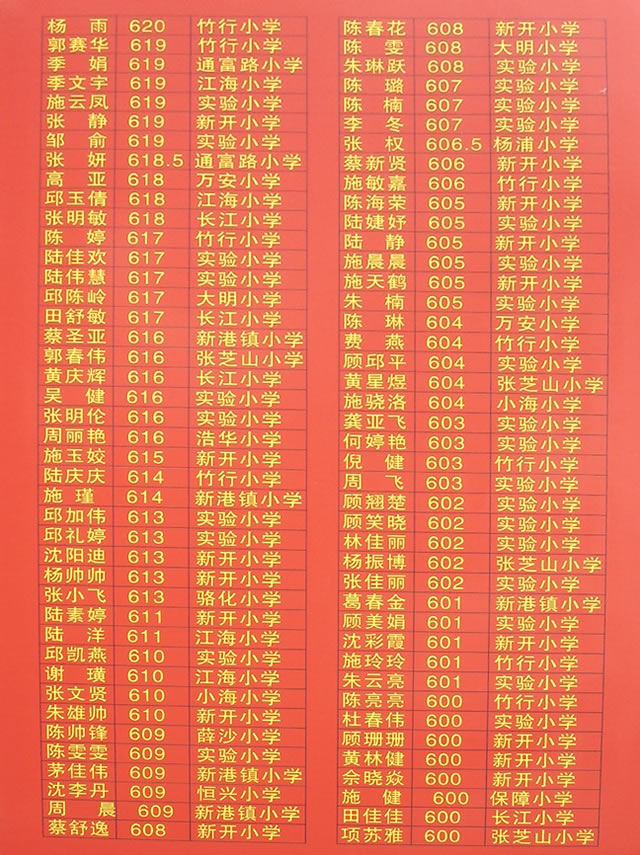 杨 雨 620 竹行小学
郭赛华 619 竹行小学
季 娟 619 通富路小学
季文宇 619 江海小学
施云凤 619 实验小学
张 静 619 新开小学
邹 俞 619 实验小学
张 妍 618.5 通富路小学
高 亚 618 万安小学
邱玉倩 618 江海小学
张明敏 618 长江小学
陈 婷 617 竹行小学
陆佳欢 617 实验小学
陆伟慧 617 实验小学
邱陈岭 617 大明小学
田舒敏 617 长江小学
蔡圣亚 616 新港镇小学
郭春伟 616 张芝山小学
黄庆辉 616 长江小学
吴 健 616 实验小学
张明伦 616 实验小学
周丽艳 616 浩华小学
施玉姣 615 新开小学
陆庆庆 614 竹行小学
施 瑾 614 新港镇小学
邱加伟 613 实验小学
邱礼婷 613 实验小学
沈阳迪 613 新开小学
杨帅帅 613 新开小学
张小飞 613 骆化小学
陆素婷 611 新开小学
陆 洋 611 江海小学
邱凯燕 610 实验小学
谢 璜 610 江海小学
张文贤 610 小海小学
朱雄帅 610 新开小学
陈帅锋 609 薛沙小学
陈雯雯 609 实验小学
茅佳伟 609 新港镇小学
沈李丹 609 恒兴小学
周 晨 609 新港镇小学
蔡舒逸 608 新开小学
陈春花 608 新开小学
陈 雯 608 大明小学
朱琳跃 608 实验小学
陈 璐 607 实验小学
陈 楠 607 实验小学
李 冬 607 实验小学
张 权 606.5 杨浦小学
蔡新贤 606 新开小学
施敏嘉 606 竹行小学
陈海荣 605 新开小学
陆婕妤 605 实验小学
陆 静 605 新开小学
施晨晨 605 实验小学
施天鹤 605 新开小学
朱 楠 605 实验小学
陈 琳 604 万安小学
费 燕 604 竹行小学
顾邱平 604 实验小学
黄星煜 604 张芝山小学
施骁洛 604 小海小学
龚亚飞 603 实验小学
何婷艳 603 实验小学
倪 健 603 竹行小学
周 飞 603 实验小学
顾翘楚 602 实验小学
顾笑晓 602 实验小学
林佳丽 602 实验小学
杨振博 602 张芝山小学
张佳丽 602 实验小学
葛春金 601 新港镇小学
顾美娟 601 实验小学
沈彩霞 601 新开小学
施玲玲 601 竹行小学
朱云亮 601 实验小学
陈亮亮 600 竹行小学
杜春伟 600 实验小学
顾珊珊 600 新开小学
黄林健 600 新开小学
佘晓焱 600 新开小学
施 健 600 保障小学
田佳佳 600 长江小学
项苏雅 600 张芝山小学